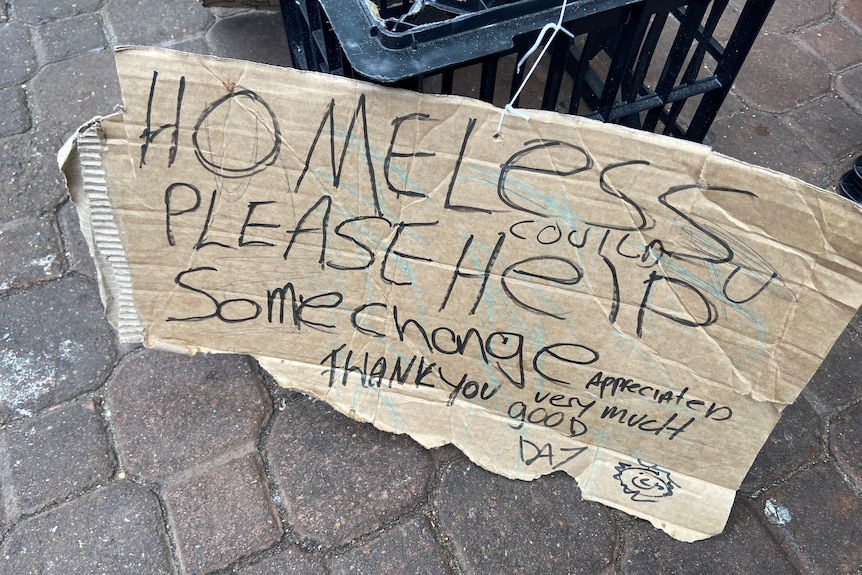 HOMELess
COULD U
PLEASE Help
Some change
APPRECIATED
THANK YOU very much
GOOD
DAY